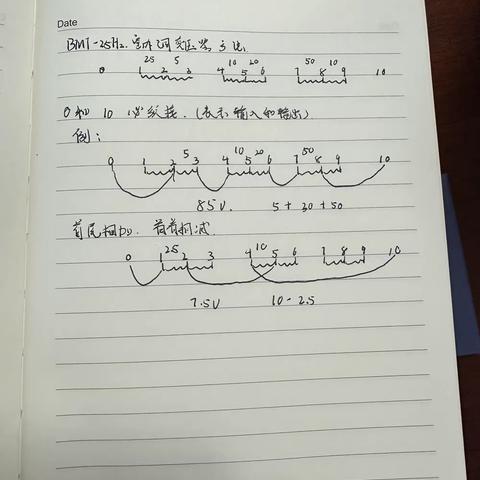 Date
BMT-25Hz. 室外可变压器方法.
25 5 10 20 50 10
0 1 2 3 4 5 6 7 8 9 10
0和10必须接.(表示输入和输出)
例:
5 10 20 50
0 1 2 3 4 5 6 7 8 9 10
85V. 5+30+50
首尾相加. 首首相减.
25 10
0 1 2 3 4 5 6 7 8 9 10
7.5V 10-2.5